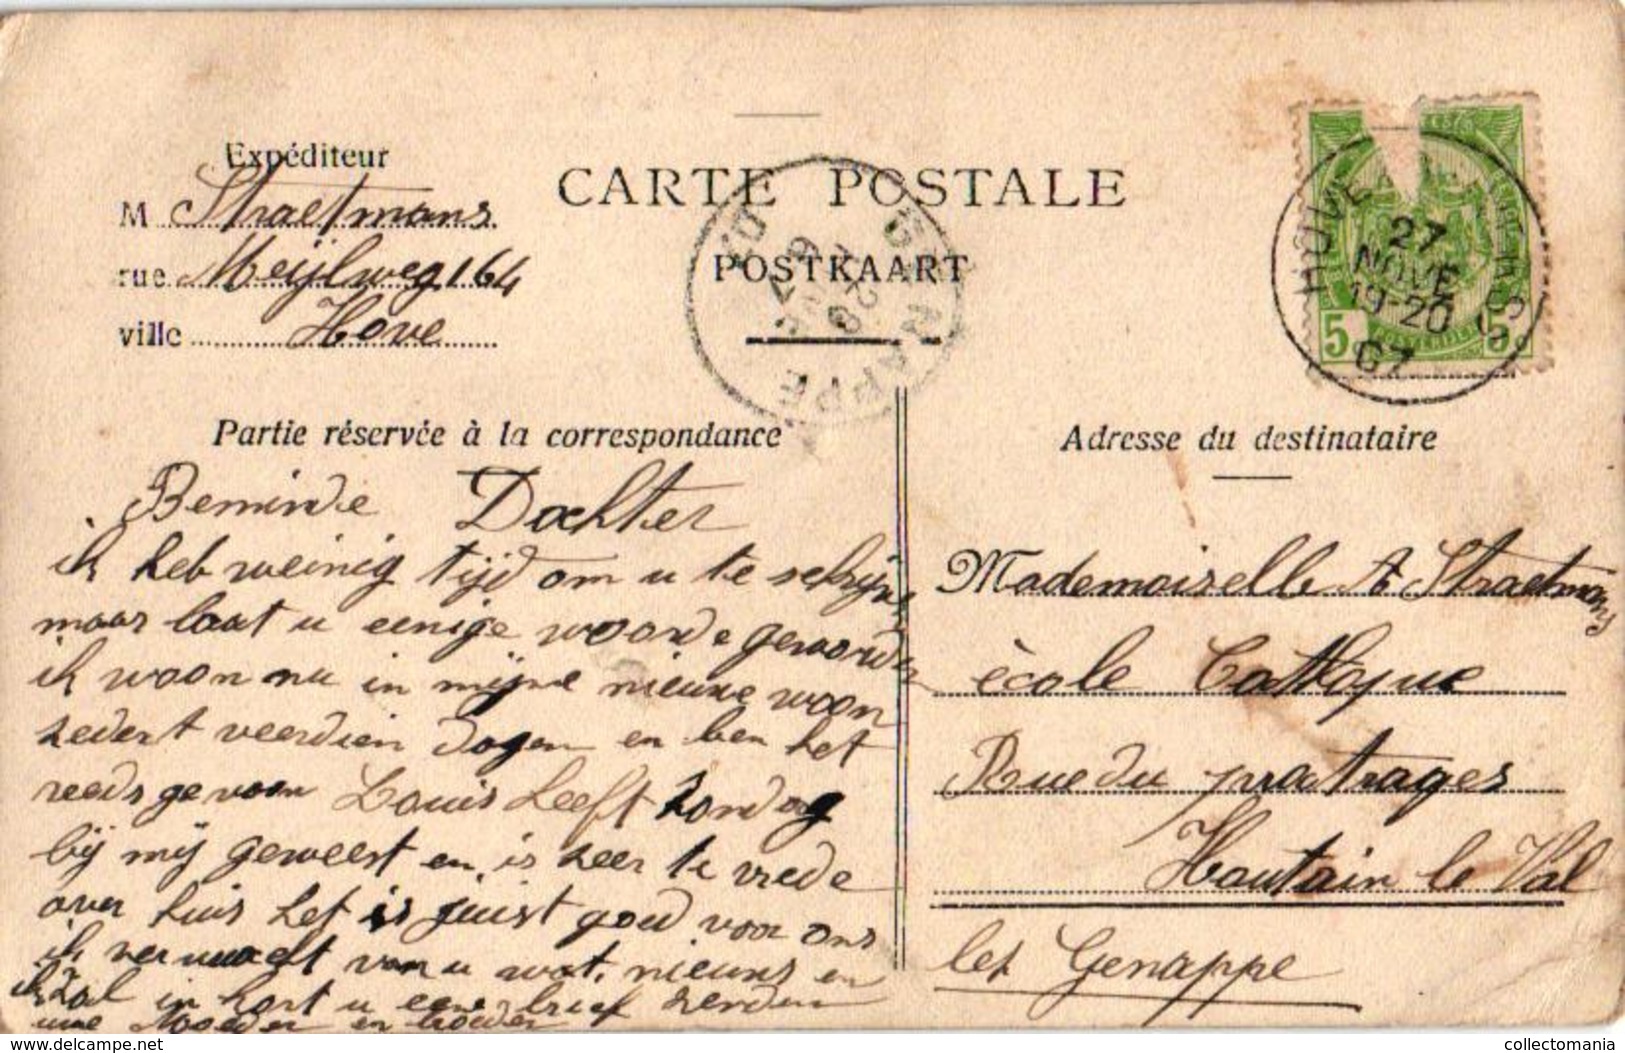 Expéditeur
M Straetmans
rue Meijlweg 164
ville Hove
CARTE POSTALE
POSTKAART
GENAPPE
28
HOVE
27
NOVE
19-20
07
5 5
Partie réservée à la correspondance
Adresse du destinataire
Beminde Dochter
ik heb weinig tijd om u te schrijve
maar laat u eenige woorde geworde
ik woon nu in mijne nieuwe woon
zedert veerdien dagen en ben het
reeds gewoon Louis heeft zondag
bij mij geweest en is zeer te vrede
over huis het is juist goed voor ons
ik verwacht van u wat nieuws en
ik zal in kort u eene brief zenden
uwe Moeder en broeder
Mademoiselle A Straetmans
école Catloque
Rue du pratrages
Houtain le Val
lez Genappe
collectomania.com